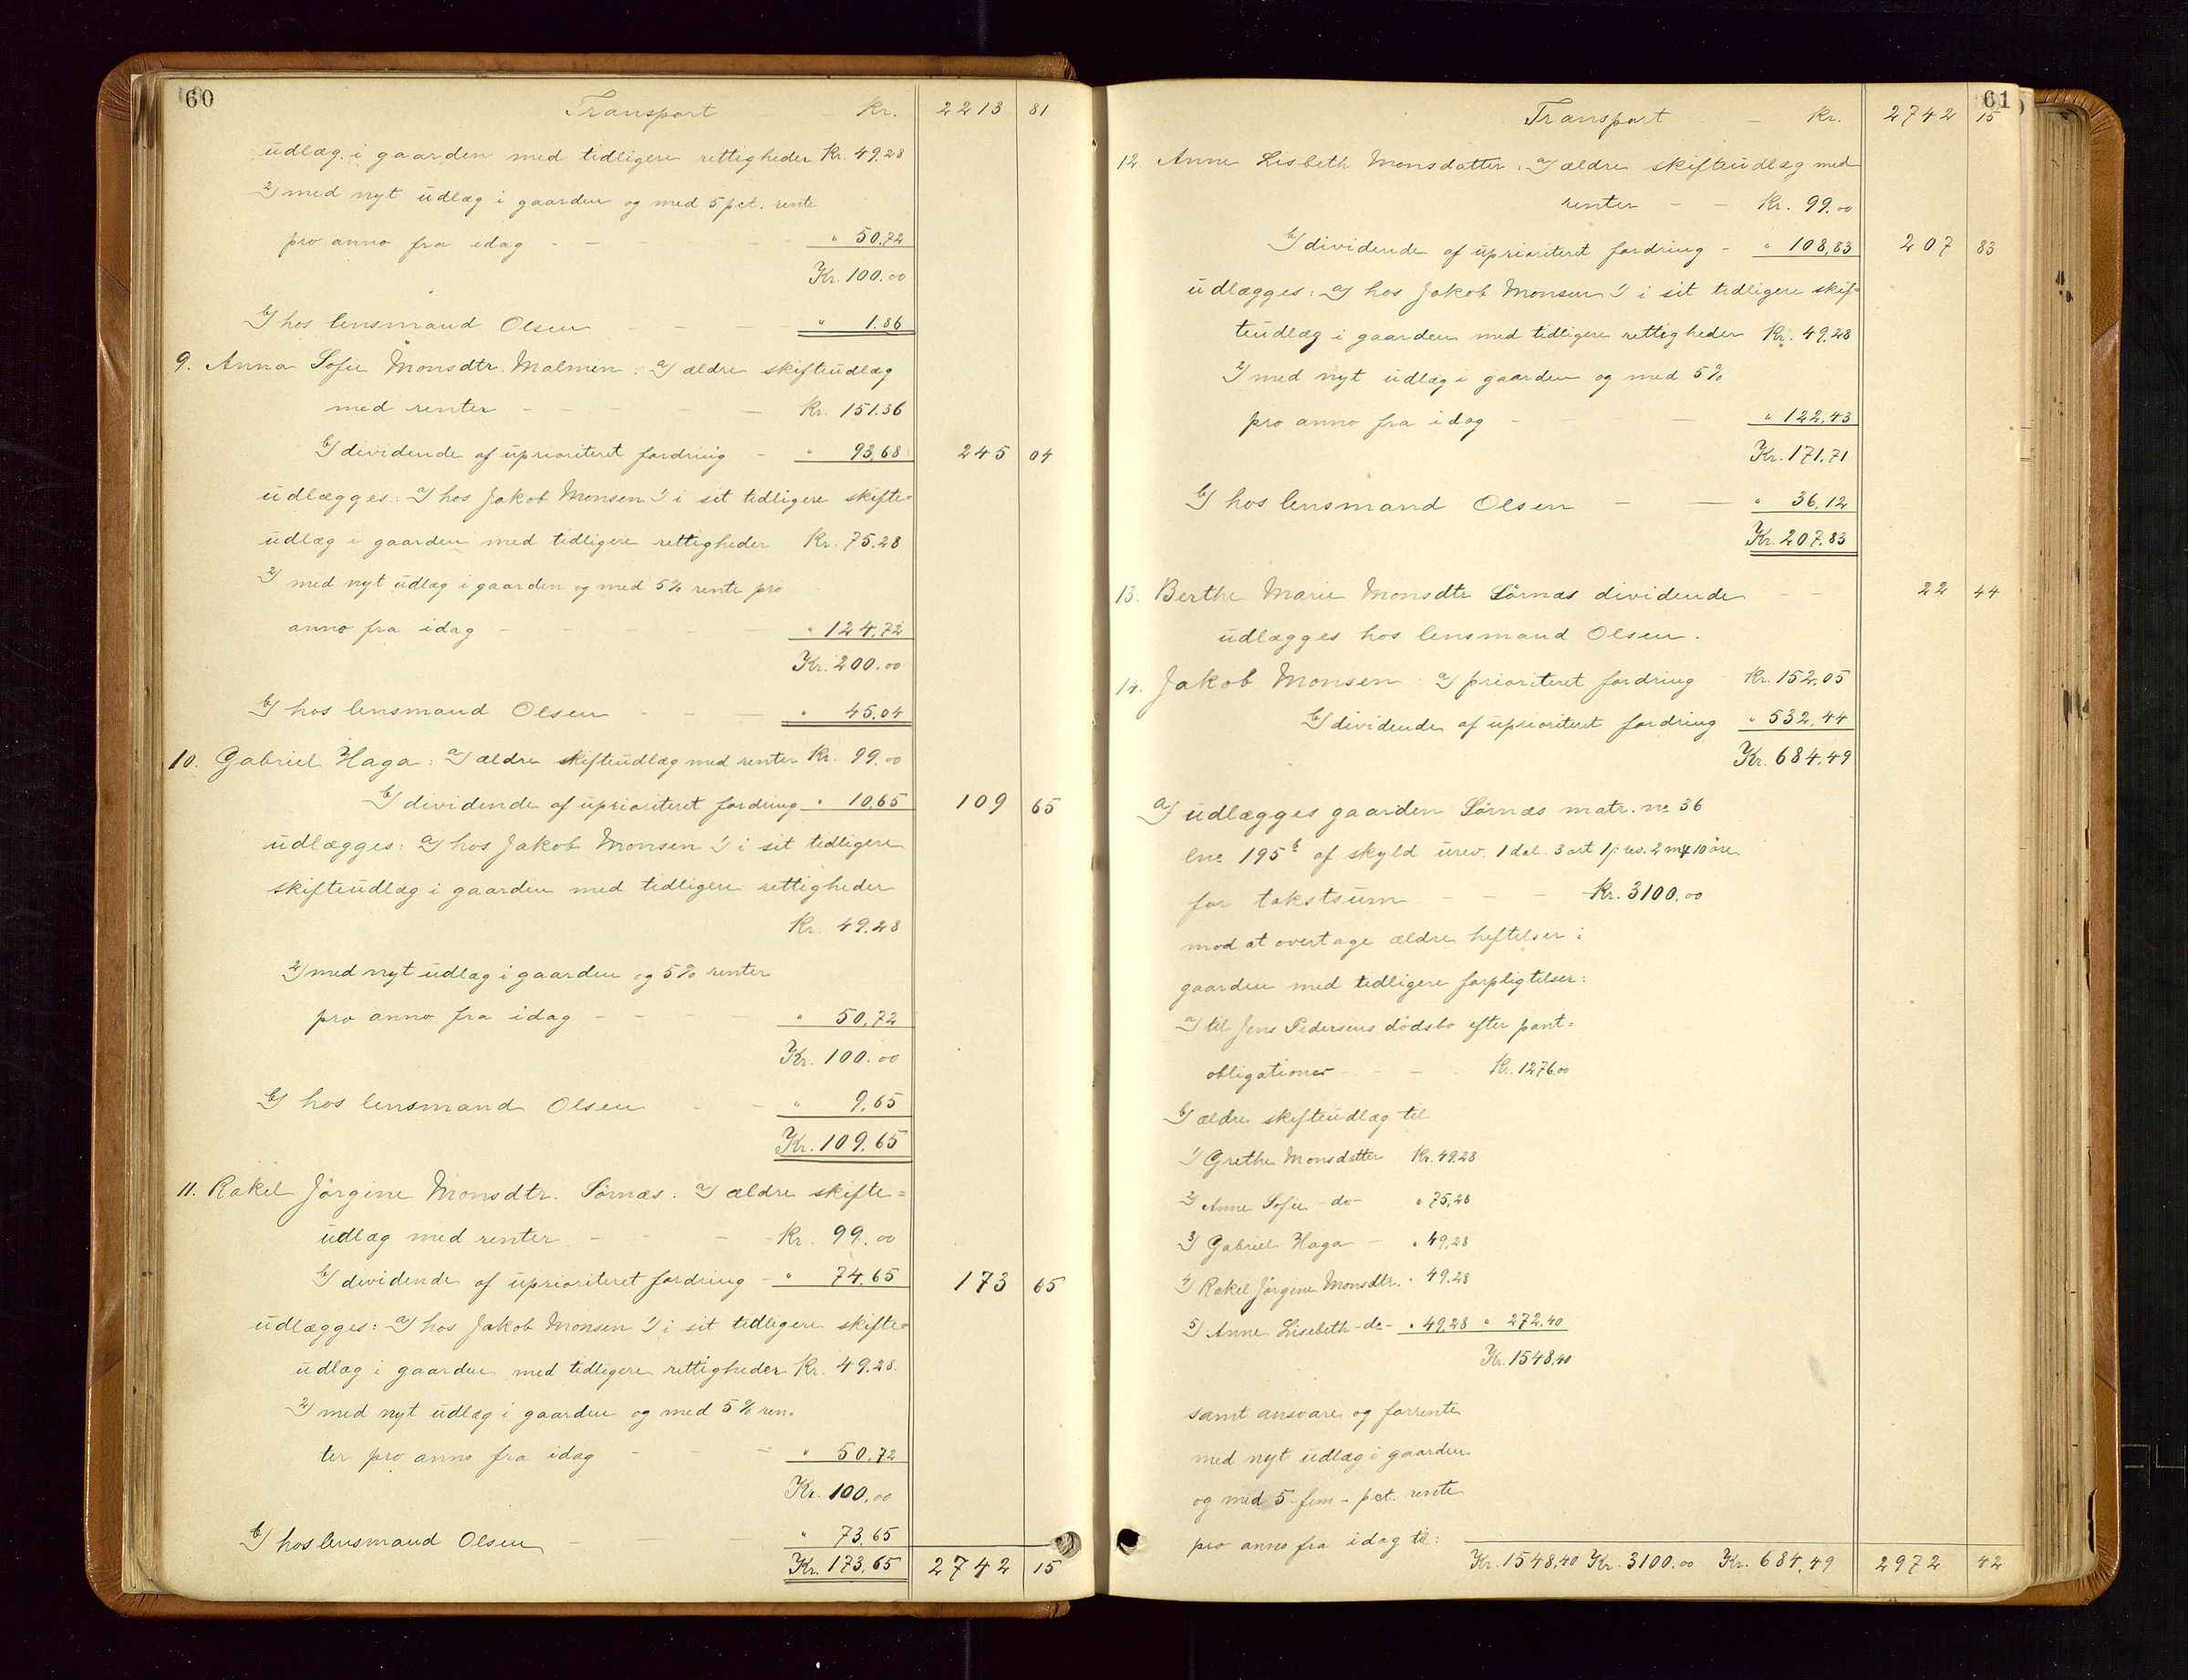 60
Transport – – Kr. 2213 81
udlæg i gaarden med tidligere rettigheder Kr. 49.28
2) med nyt udlæg i gaarden og med 5 pct. rente
pro anno fra idag – – – – – " 50.72
Kr. 100.00
b) hos lensmand Olsen – – – " 1.86
9. Anna Sofie Monsdtr. Malmen: a) ældre skifteudlæg
med renter – – – – – Kr. 151.36
b) dividende af uprioriteret fordring – " 93,68 245 04
udlægges: a) hos Jakob Monsen 1) i sit tidligere skifte=
udlæg i gaarden med tidligere rettigheder Kr. 75.28
2) med nyt udlæg i gaarden og med 5% rente pro
anno fra idag – – – – " 124,72
Kr. 200.00
b) hos lensmand Olsen – – – " 45.04
10. Gabriel Haga: a) ældre skifteudlæg med renter Kr. 99.00
b) dividende af uprioriteret fordring " 10,65 109 65
udlægges: a) hos Jakob Monsen 1) i sit tidligere
skifteudlæg i gaarden med tidligere rettigheder
Kr. 49.28
2) med nyt udlæg i gaarden og 5% renter
pro anno fra idag – – – – " 50,72
Kr. 100.00
b) hos lensmand Olsen – – " 9,65
Kr. 109,65
11. Rakel Jörgine Monsdtr. Sörnæs: a) ældre skifte=
udlæg med renter – – – Kr. 99.00
b) dividende af uprioriteret fordring – " 74,65 173 65
udlægges: a) hos Jakob Monsen 1) i sit tidligere skifte=
udlæg i gaarden med tidligere rettigheder Kr. 49.28
2) med nyt udlæg i gaarden og med 5% ren=
ter pro anno fra idag – – – " 50,72
Kr. 100,00
b) hos lensmand Olsen – – – " 73,65
Kr. 173,65 2742 15
61
Transport – – Kr. 2742 15
12. Anne Lisbeth Monsdatter: a) ældre skifteudlæg med
renter – – Kr. 99.00
b) dividende af uprioriteret fordring – " 108,83 207 83
udlægges: a) hos Jakob Monsen 1) i sit tidligere skif=
teudlæg i gaarden med tidligere rettigheder Kr. 49.28
2) med nyt udlæg i gaarden og med 5%
pro anno fra idag – – – " 122,43
Kr. 171.71
b) hos lensmand Olsen – – " 36,12
Kr. 207.83
13. Berthe Marie Monsdtr Sörnæs dividende – – 22 44
udlægges hos lensmand Olsen.
14. Jakob Monsen: a) prioriteret fordring – Kr. 152,05
b) dividende af uprioriteret fordring " 532,44
Kr. 684,49
a) udlægges gaarden Sörnæs matr. no 36
lno 195b af skyld urev. 1 dal. 3 ort 1 ſ: rev. 2 mk 10 öre
for takstsum – – – Kr. 3100.00
mod at overtage ældre heftelser i
gaarden med tidligere forpligtelser:
a) til Jens Pedersens dödsbo efter pant=
obligationer – – – Kr. 1276.00
b) ældre skifteudlæg til
1) Grethe Monsdatter Kr. 49.28
2) Anne Sofie – do – " 75,28
3) Gabriel Haga – " 49,28
4) Rakel Jörgine Monsdtr. " 49.28
5) Anne Lisebeth – do – " 49,28 " 272,40
Kr. 1548,40
samt ansvare og forrente
med nyt udlæg i gaarden
og med 5 – fem – pct. rente
pro anno fra idag til:
Kr. 1548,40 Kr. 3100.00 Kr. 684,49 2972 42